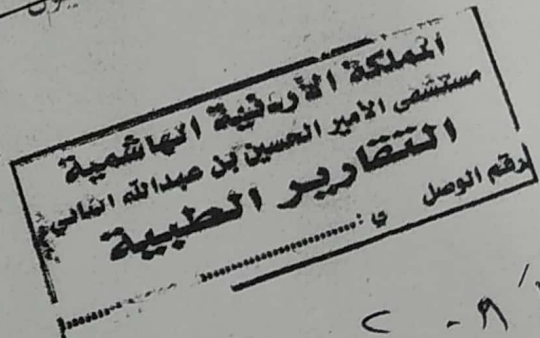 المملكة الأردنية الهاشمية
مستشفى الأمير الحسين بن عبدالله الثاني
التقارير الطبية
رقم الوصل